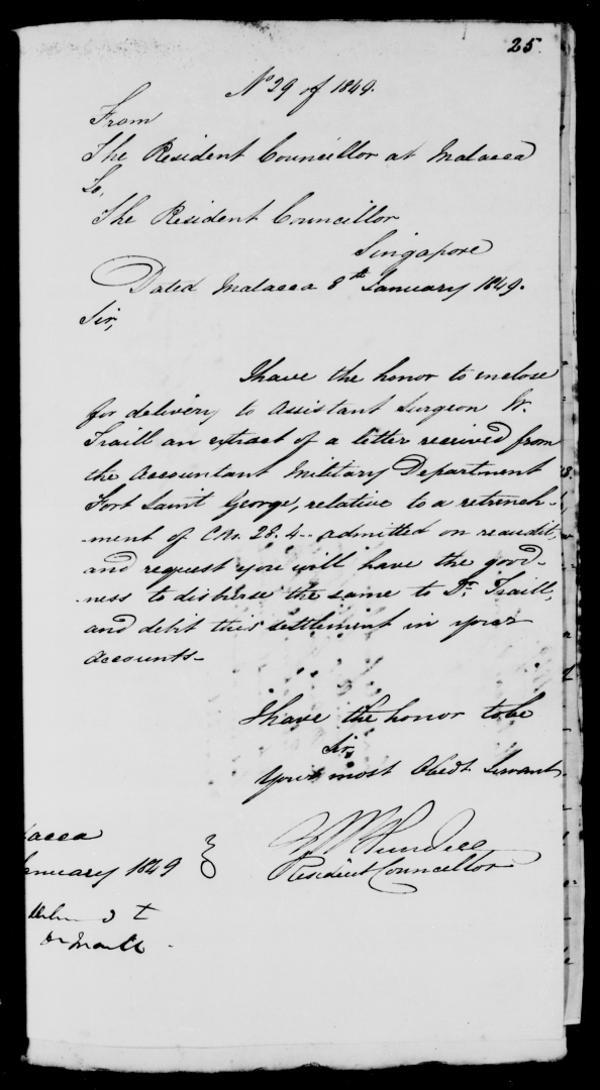 25.
No 29 of 1849.
From
The Resident Councillor at Malacca
To,
The Resident Councillor
Singapore
Dated Malacca 8th January 1849.
Sir,
I have the honor to enclose
for delivery to Assistant Surgeon W.
Traill an extract of a letter received from
the Accountant Military Department
Fort Saint George, relative to a retrench-
-ment of 28.4.. admitted on reaudit,
and request you will have the good-
-ness to disburse the same to Dr. Traill,
and debit this settlement in your
accounts-
I have the honor to be
Sir,
Your most Obedt Servant
Resident Councillor
lacca
anuary 1849